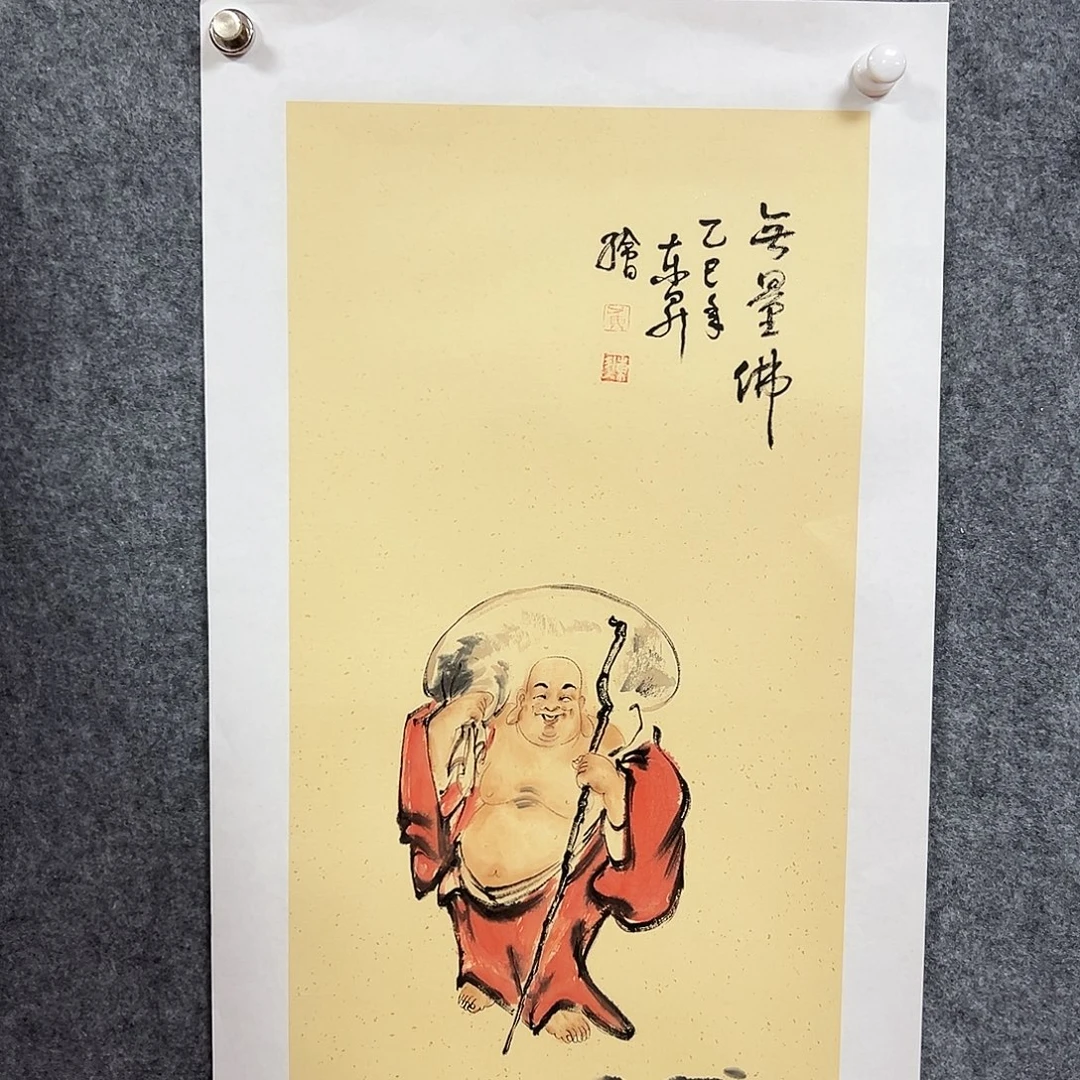 無量佛
乙巳年
東昇
繪